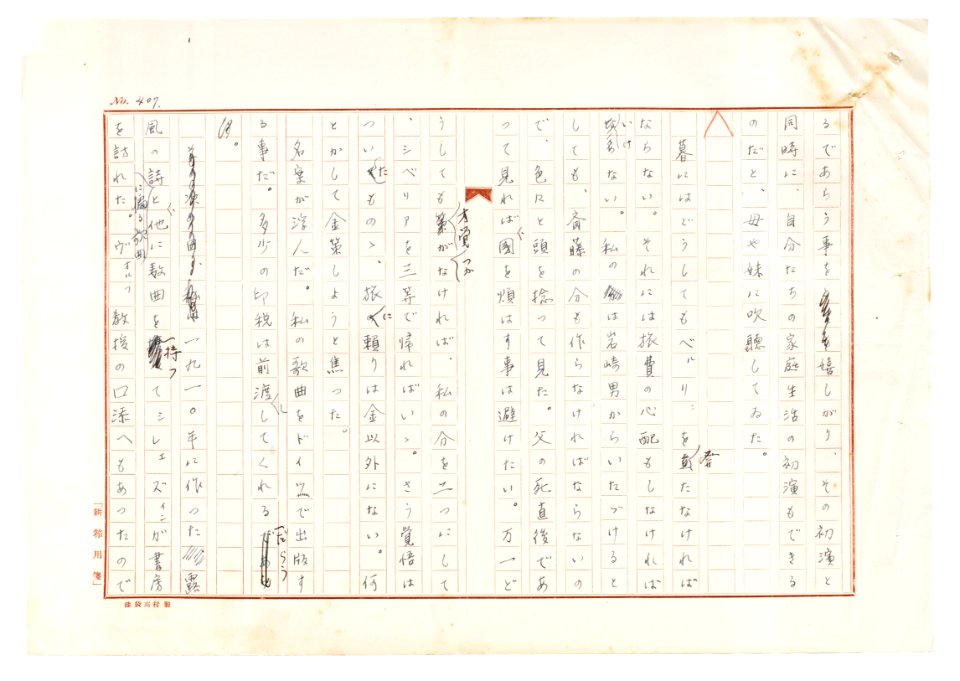 No. 407.
るであらう事を嬉しがり、その初演と
同時に、自分たちの家庭生活の初演もできる
のだと、母や妹に吹聴してゐた。
暮にはどうしてもベルリンを発たなければ
ならない。それには旅費の心配もしなければ
いけない。私のは岩崎男からいたゞけると
しても、斎藤の分も作らなければならないの
で、色々と頭を捻って見た。父の死直後であ
って見れば国を煩はす事は避けたい。万一ど
うしても才覚がつかなければ、私の分を二つにして
、シベリアを三等で帰ればいゝ。さう覚悟は
ついたものゝ、旅に頼りは金以外にない。何
とかして金策しようと焦った。
名案が浮んだ。私の歌曲をドイツで出版す
る事だ。多少の印税は前渡ししてくれるだらう
。
一九一〇年に作った露
風の詩に據る歌曲と他に数曲を持つてシレェズィンガ書房
を訪れた。ヴォルフ教授の口添へもあったので
「新邦用箋」